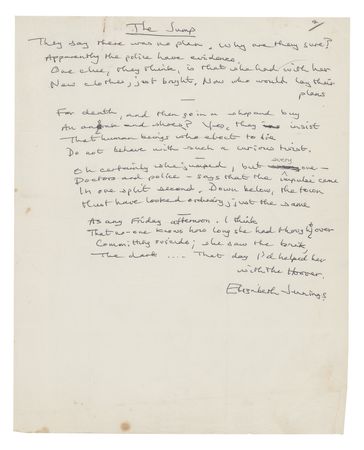 The Jump
They say there was no plan. Why are they sure?
Apparently the police have evidence.
One clue, they think, is that she had with her
New clothes, just bought. Now who would lay their
plans
For death, and then go in a shop and buy
and shoes? Yes, they insist
That human beings who elect to die
Do not behave with such a curious twist.
Oh certainly she jumped, but every one –
Doctors and police – says that the impulse came
In one split second. Down below, the town
Must have looked ordinary, just the same
As any Friday afternoon. I think
That no-one knows how long she had thought over
Committing suicide; she saw the brink,
The dark .... That day I'd helped her
with the Hoover.
Elizabeth Jennings